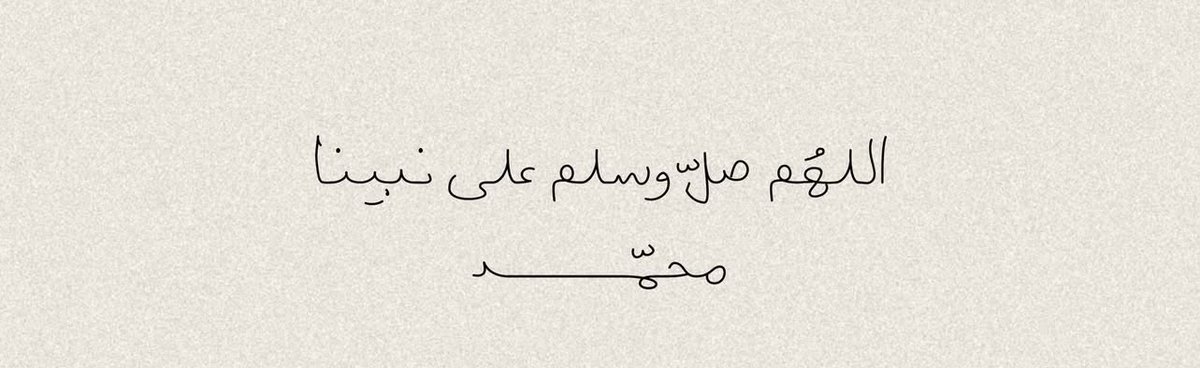 اللهُم صلّ وسلم على نبينا
محمّد